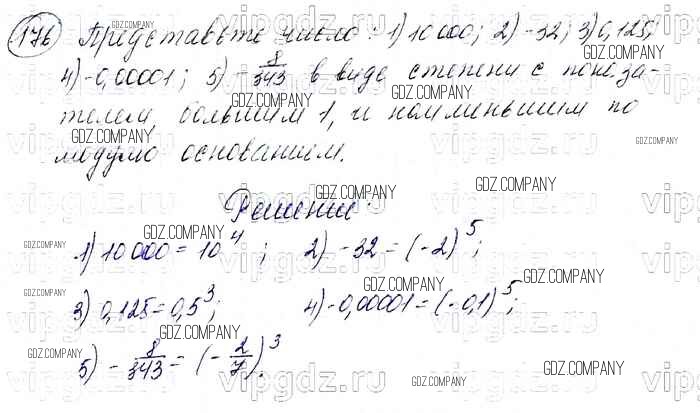 176 Представьте число: 1) 10 000; 2) -32; 3) 0,125;
4) -0,00001; 5) -8/343 в виде степени с показа-
телем, большим 1, и наименьшим по
модулю основанием.
Решение:
1) 10 000 = 10^4; 2) -32 = (-2)^5;
3) 0,125 = 0,5^3; 4) -0,00001 = (-0,1)^5;
5) -8/343 = (-2/7)^3.
GDZ.COMPANY
vipgdz.ru